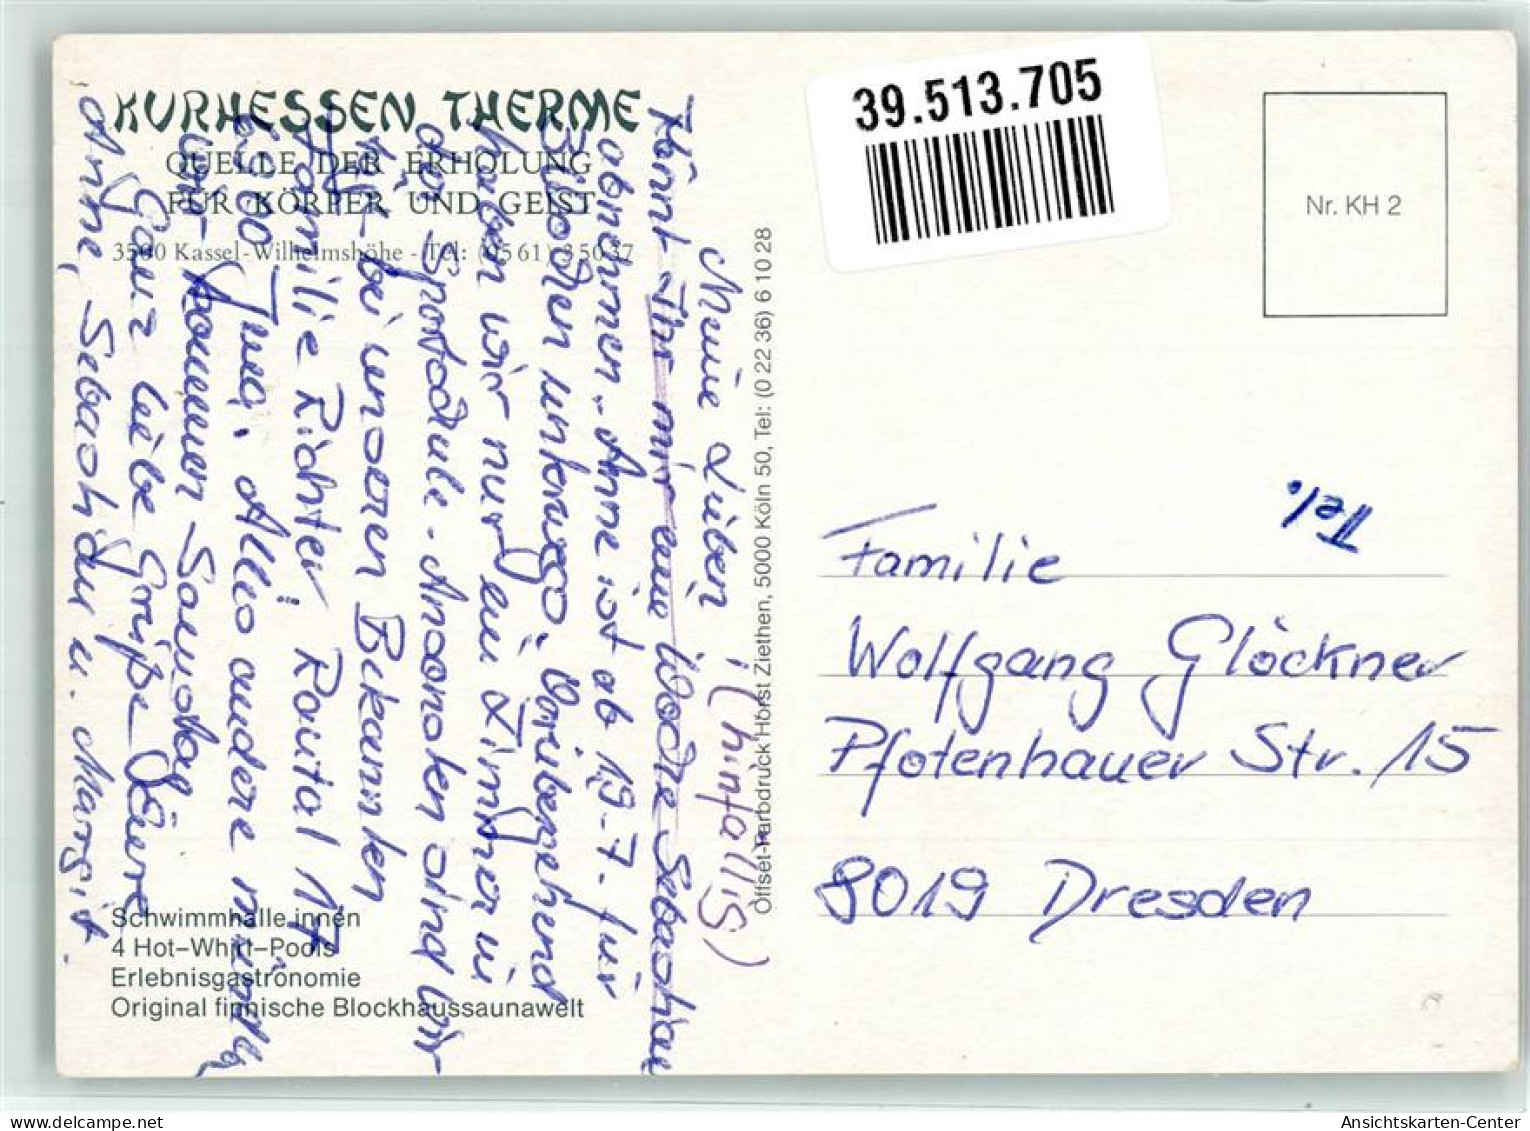 KURHESSEN THERME
QUELLE DER ERHOLUNG
FÜR KÖRPER UND GEIST
3500 Kassel-Wilhelmshöhe - Tel: (0561) 35037
Schwimmhalle innen
4 Hot-Whirl-Pools
Erlebnisgastronomie
Original finnische Blockhaussaunawelt
Meine Lieben, (hinfällig)
Könnt Ihr mir eine Woche Sebastian
abnehmen. Anne ist ab 19.7. für
3 Wochen unterwegs. Vorübergehend
haben wir nur ein Zimmer in
der Sportschule. Ansonsten sind wir
bei unseren Bekannten
Familie Richter Rautal 17
6900 Jena. Alles andere mündl.
Wir kommen Samstag
Ganz liebe Grüße Eure
Anne, Sebastian u. Margit.
Offset-Farbdruck Horst Ziethen, 5000 Köln 50, Tel: (0 22 36) 6 10 28
39.513.705
Nr. KH 2
Tel.
Familie
Wolfgang Glöckner
Pfotenhauer Str. 15
8019 Dresden
oldthing
Ansichtskarten-Center